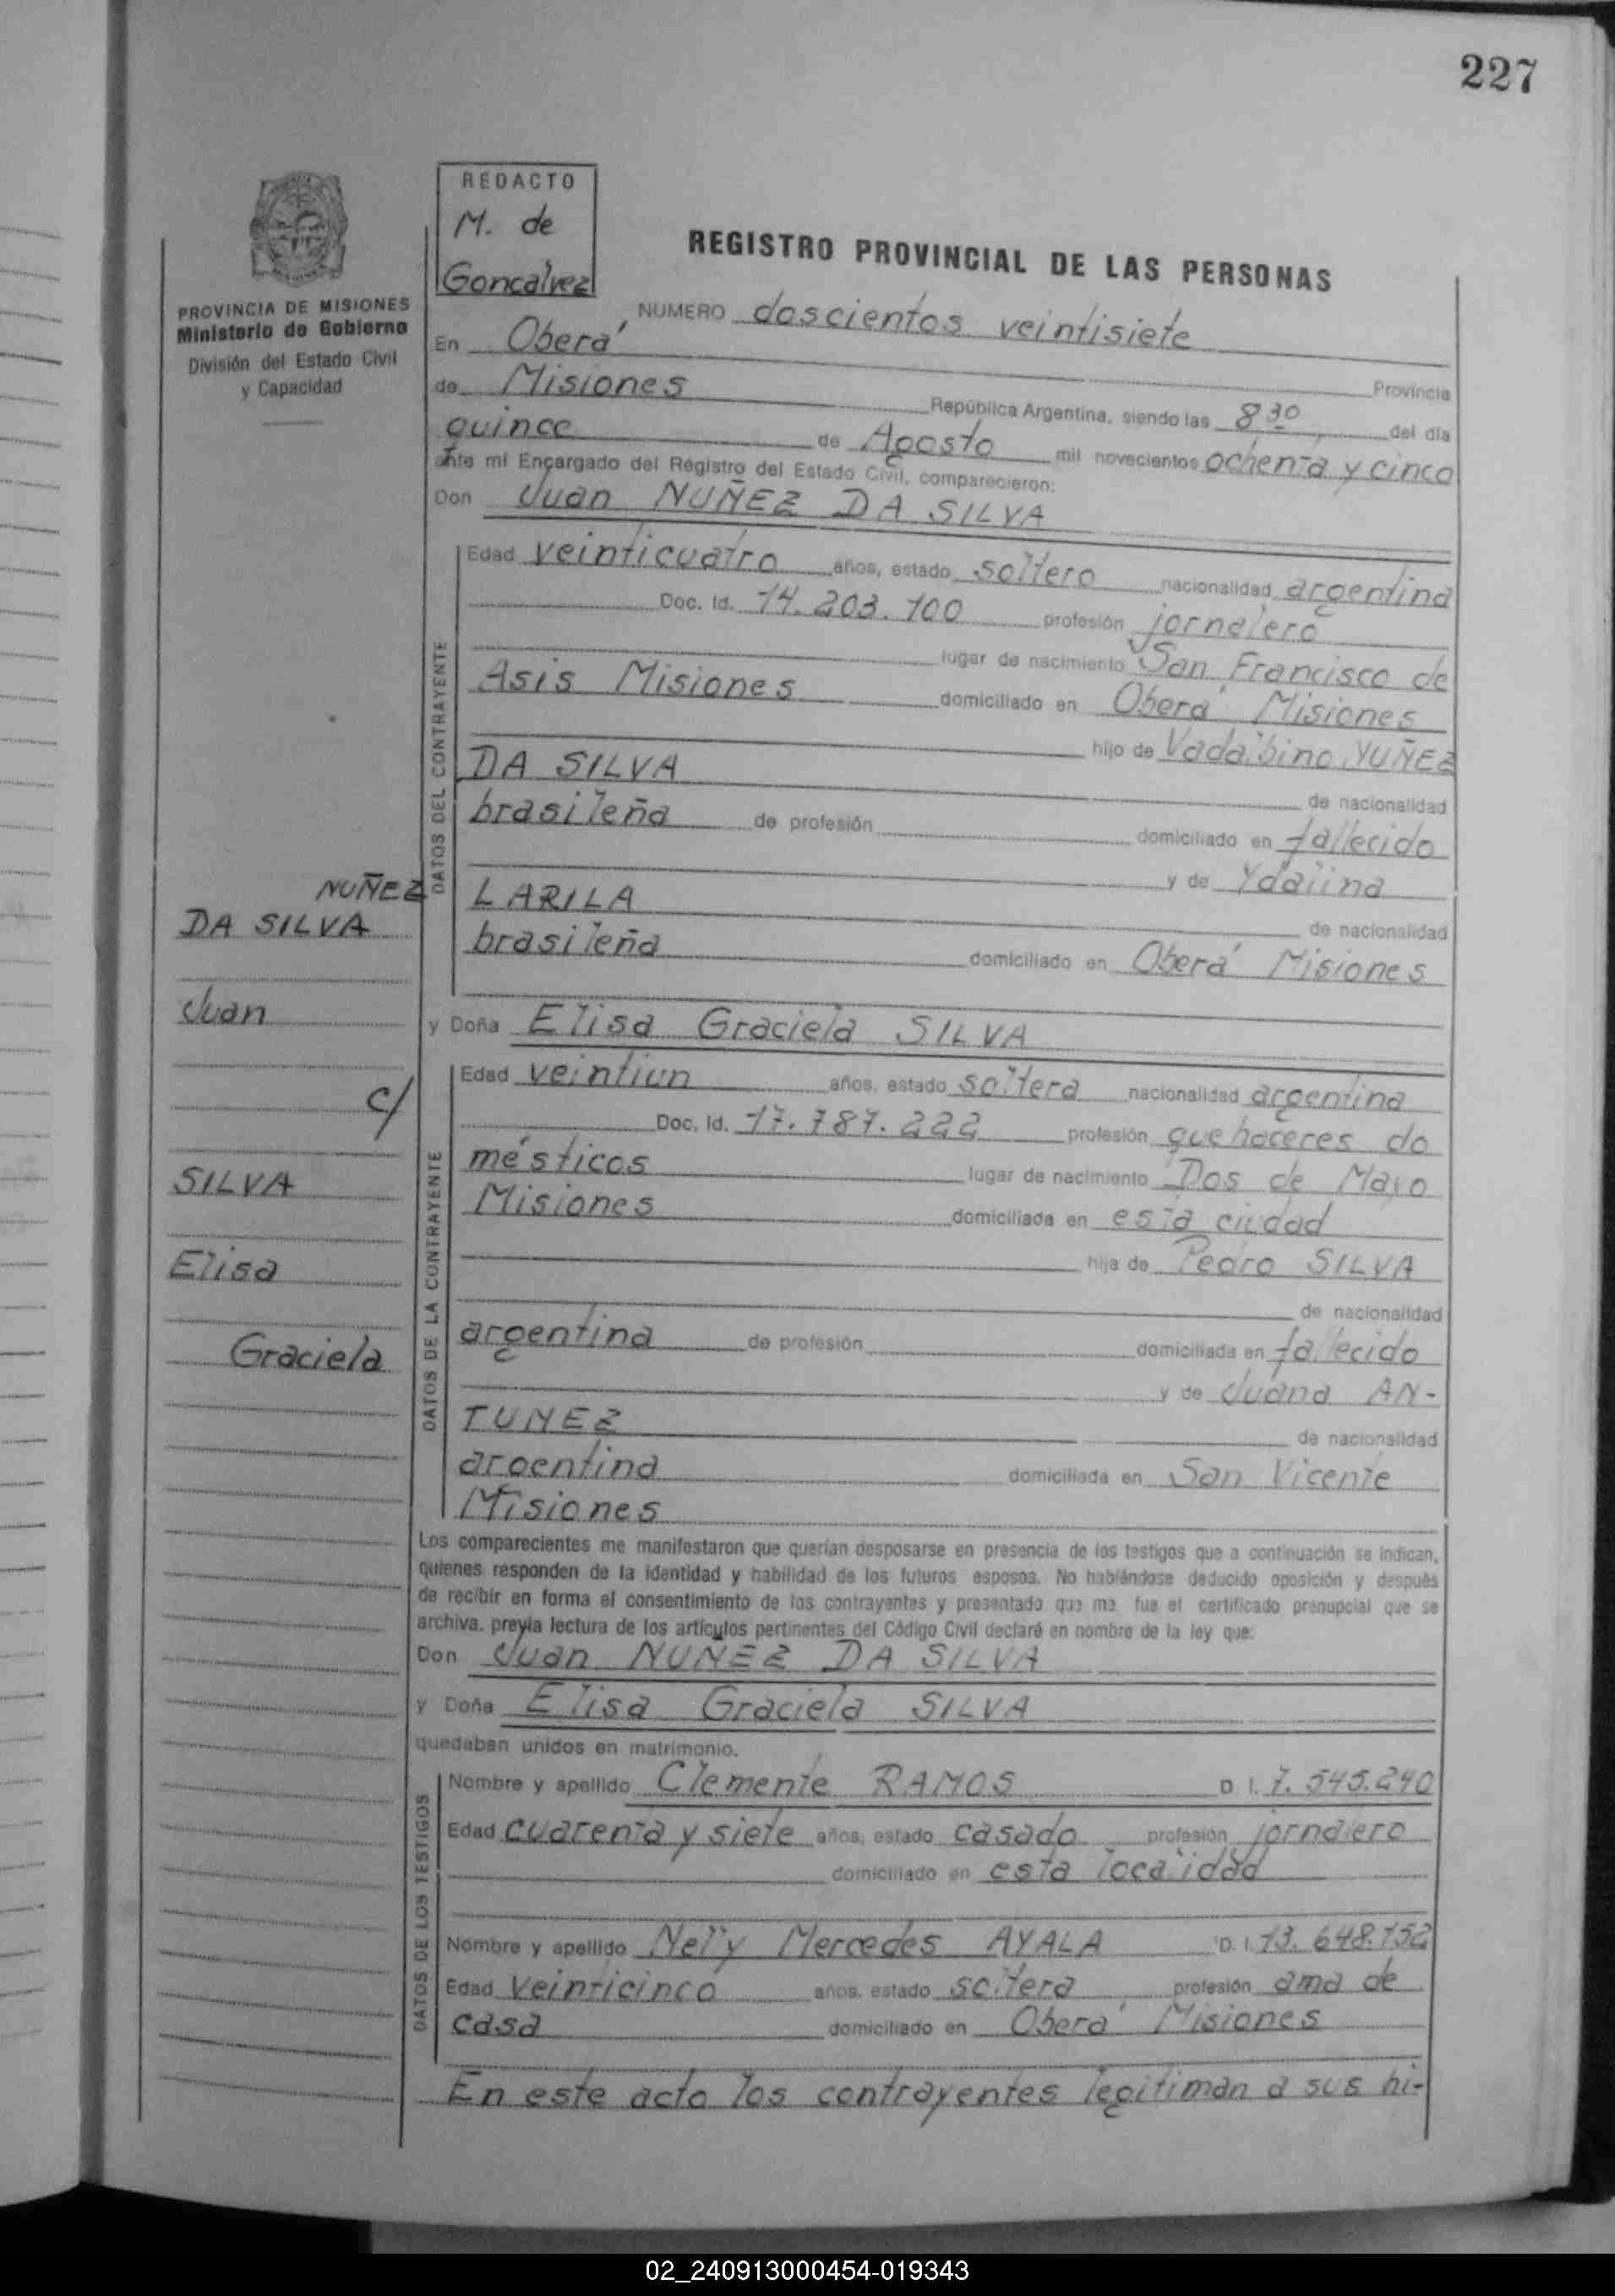 227
REDACTO
M. de
Goncalvez
PROVINCIA DE MISIONES
Ministerio de Gobierno
División del Estado Civil
y Capacidad
REGISTRO PROVINCIAL DE LAS PERSONAS
NUMERO doscientos veintisiete
En Oberá Provincia
de Misiones República Argentina, siendo las 8 30 del día
quince de Agosto mil novecientos ochenta y cinco
ante mi Encargado del Registro del Estado Civil, comparecieron:
Don Juan NUÑEZ DA SILVA
DATOS DEL CONTRAYENTE
Edad veinticuatro años, estado soltero nacionalidad argentina
Doc. Id. 14.203.100 profesión jornalero
lugar de nacimiento San Francisco de
Asis Misiones domiciliado en Oberá Misiones
hijo de NUÑEZ
DA SILVA de nacionalidad
brasileña de profesión domiciliado en fallecido
y de
LARILA de nacionalidad
brasileña domiciliado en Oberá Misiones
y Doña Elisa Graciela SILVA
DATOS DE LA CONTRAYENTE
Edad veintiun años, estado soltera nacionalidad argentina
Doc. Id. 17.787.222 profesión quehaceres do
mésticos lugar de nacimiento Dos de Mayo
Misiones domiciliada en esta ciudad
hija de Pedro SILVA
de nacionalidad
argentina de profesión domiciliada en fallecido
y de Juana AN-
TUNEZ de nacionalidad
argentina domiciliada en San Vicente
Misiones
NUÑEZ
DA SILVA
Juan
c/
SILVA
Elisa
Graciela
Los comparecientes me manifestaron que querían desposarse en presencia de los testigos que a continuación se indican,
quienes responden de la identidad y habilidad de los futuros esposos. No habiéndose deducido oposición y después
de recibir en forma el consentimiento de los contrayentes y presentado que me fue el certificado prenupcial que se
archiva, previa lectura de los artículos pertinentes del Código Civil declaré en nombre de la ley que:
Don Juan NUÑEZ DA SILVA
y Doña Elisa Graciela SILVA
quedaban unidos en matrimonio.
DATOS DE LOS TESTIGOS
Nombre y apellido Clemente RAMOS D. I. 7.545.240
Edad cuarenta y siete años, estado casado profesión jornalero
domiciliado en esta localidad
Nombre y apellido Nelly Mercedes AYALA D. I. 13.648.152
Edad veinticinco años, estado soltera profesión ama de
casa domiciliado en Oberá Misiones
En este acto los contrayentes legitiman a sus hi-
02_240913000454-019343